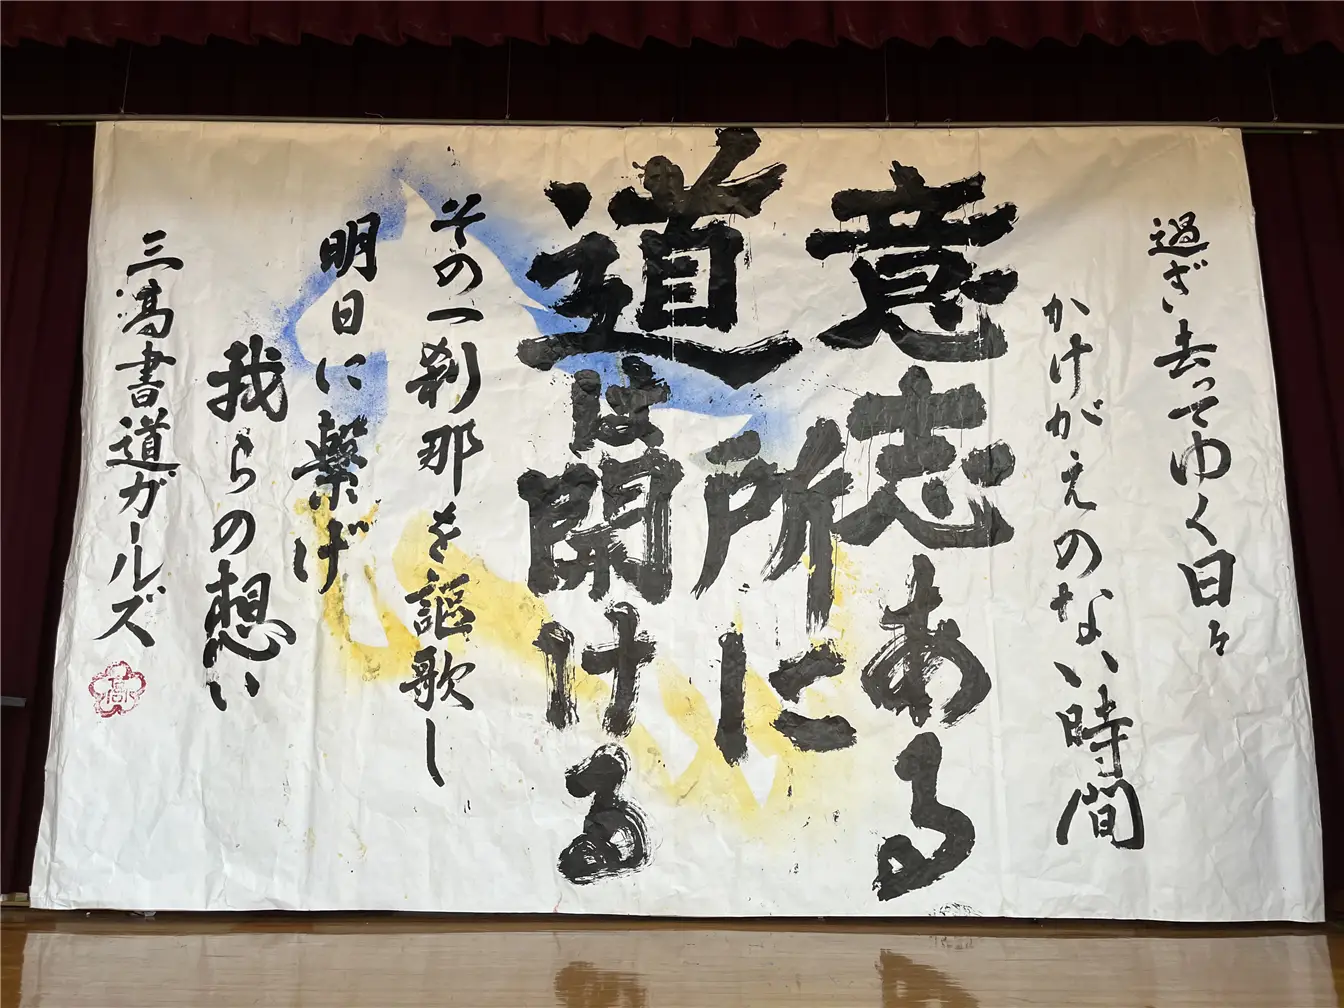 過ぎ去ってゆく日々
かけがえのない時間
意志ある
所に
道は開ける
その一刹那を謳歌し
明日に繋げ
我らの想い
三高書道ガールズ